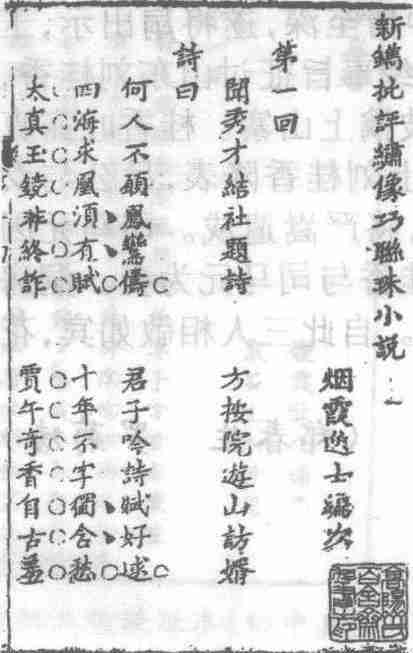 新鐫批評繡像巧聯珠小説
烟霞逸士編次
第一回
聞秀才結社題詩　方按院遊山訪婿
詩曰
何人不願鳳鸞儔　君子吟詩賦好逑
四海求凰須有賦　十年不字獨含愁
太真玉鏡非終詐　賈午奇香自古羞